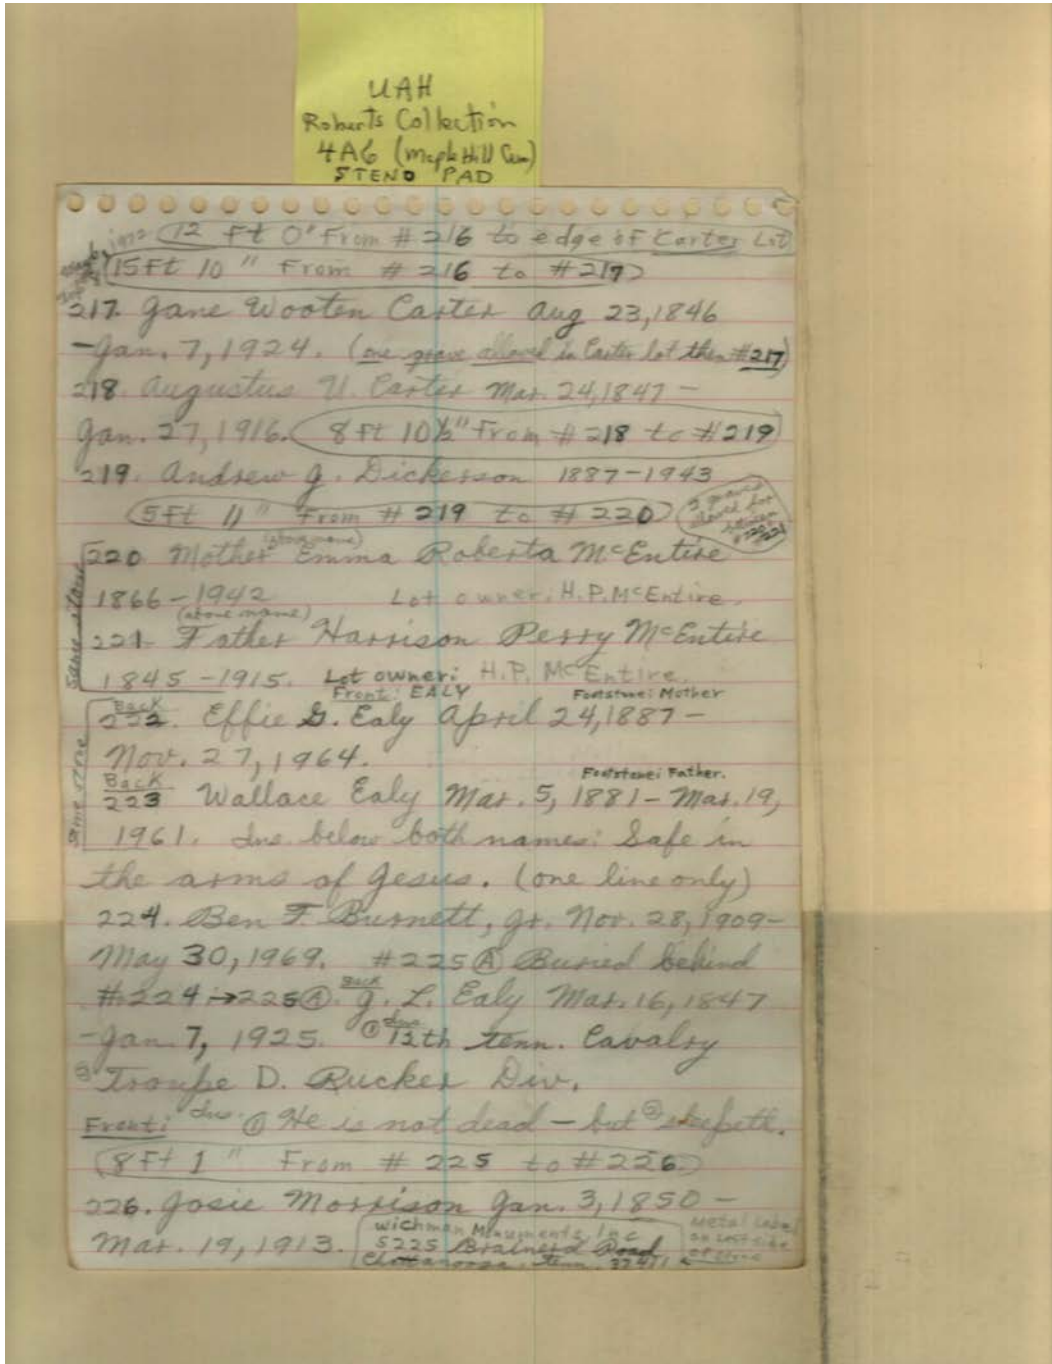 UAH
Roberts Collection
4A6 (Maple Hill Cem)
STENO PAD
1972 12 Ft 0" From # 216 to edge of Carter Lot
15Ft 10" From # 216 to # 217
217. Jane Wooten Carter Aug 23, 1846
- Jan. 7, 1924. (one grave allowed in Carter lot then #217)
218. Augustus W. Carter Mar. 24, 1847 -
Jan. 27, 1916. 8 ft 10½" From # 218 to #219
219. Andrew J. Dickerson 1887-1943
5Ft 11" From # 219 to # 220
2 graves
(above name)
220 Mother Emma Roberta McEntire
same stone
1866-1942 Lot owner: H.P. McEntire.
(above name)
221. Father Harrison Perry McEntire
1845-1915. Lot owner: H.P. McEntire.
Front: EALY Footstone: Mother
Back
222. Effie G. Ealy April 24, 1887 -
Nov. 27, 1964.
same stone
Back Footstone: Father.
223 Wallace Ealy Mar. 5, 1881 - Mar. 19,
1961. Ins. below both names: Safe in
the arms of Jesus. (one line only)
224. Ben F. Burnett, Jr. Nov. 28, 1909-
May 30, 1969. #225 Ⓐ Buried behind
#224 → 225 Ⓐ. Back J. L. Ealy Mar. 16, 1847
- Jan. 7, 1925. Ins. ① 12th Tenn. Cavalry
② Troupe D. Rucker Div.
Front: Ins. ① He is not dead - but ② sleepeth.
8Ft 1" From # 225 to # 226
226. Josie Morrison Jan. 3, 1850 -
Mar. 19, 1913.
Wichman Monuments Inc
5225 Brainerd Road
Chattanooga, Tenn. 37411
Metal Label
on left side
of stone